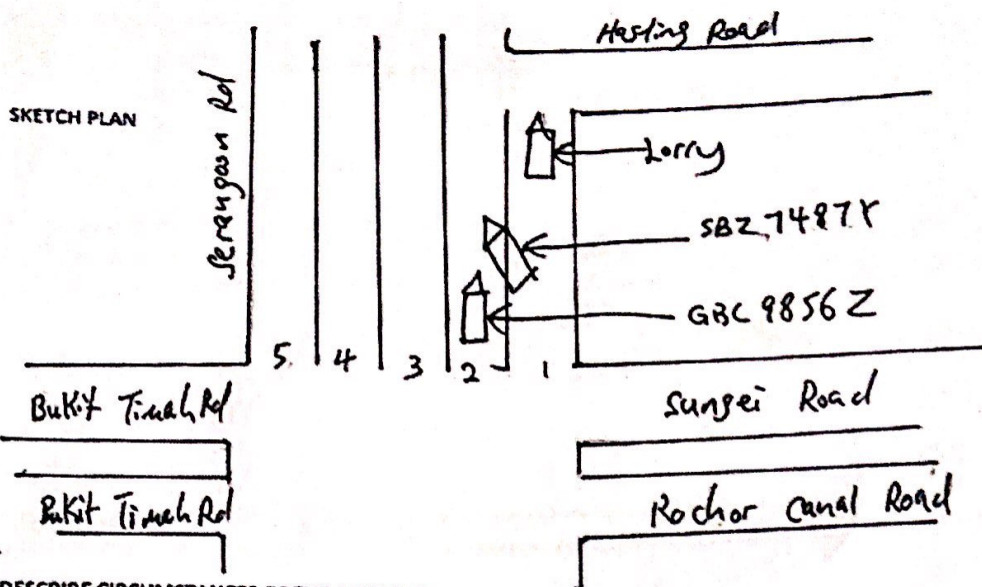 Hasting Road
SKETCH PLAN
Serangoon Rd
Lorry
SBZ 7487Y
GBC 9856Z
5 4 3 2 1
Bukit Timah Rd
Sungei Road
Bukit Timah Rd
Rochor Canal Road